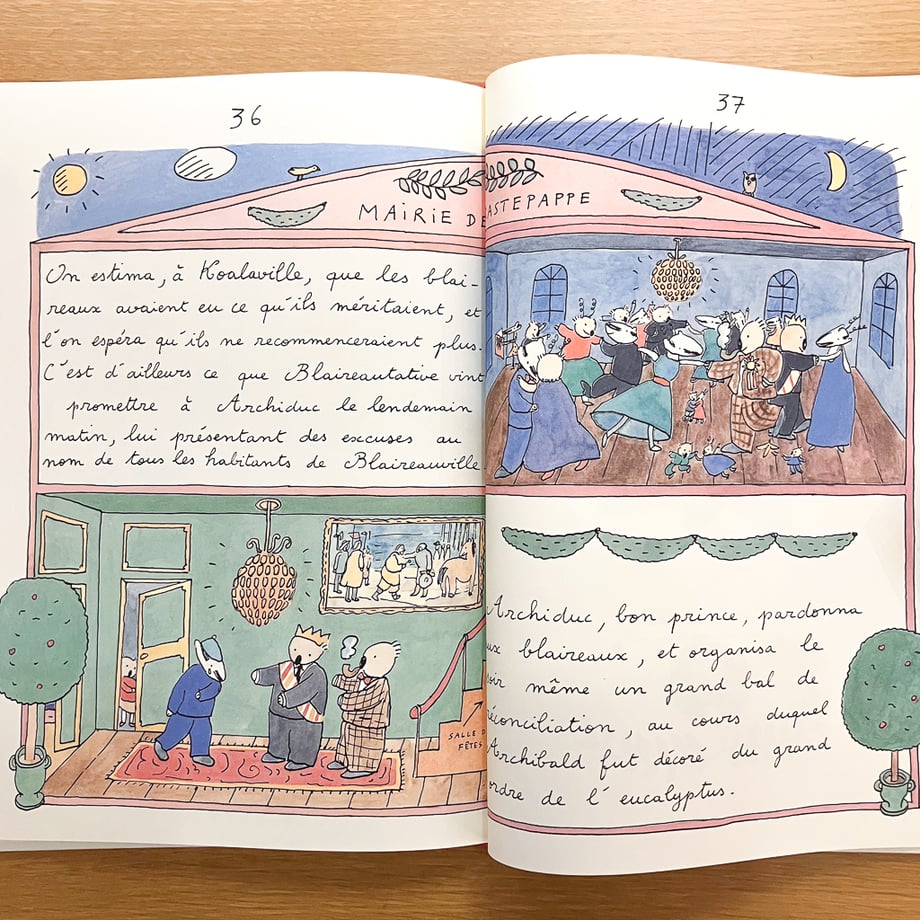 36
37
MAIRIE DE ASTEPAPPE
On estima, à Koalaville, que les blai-
reaux avaient eu ce qu'ils méritaient, et
l'on espéra qu'ils ne recommenceraient plus.
C'est d'ailleurs ce que Blaireautative vint
promettre à Archiduc le lendemain
matin, lui présentant des excuses au
nom de tous les habitants de Blaireauville.
SALLE D
FÊTES
Archiduc, bon prince, pardonna
ux blaireaux, et organisa le
oir même un grand bal de
éconciliation, au cours duquel
Archibald fut décoré du grand
ordre de l'eucalyptus.